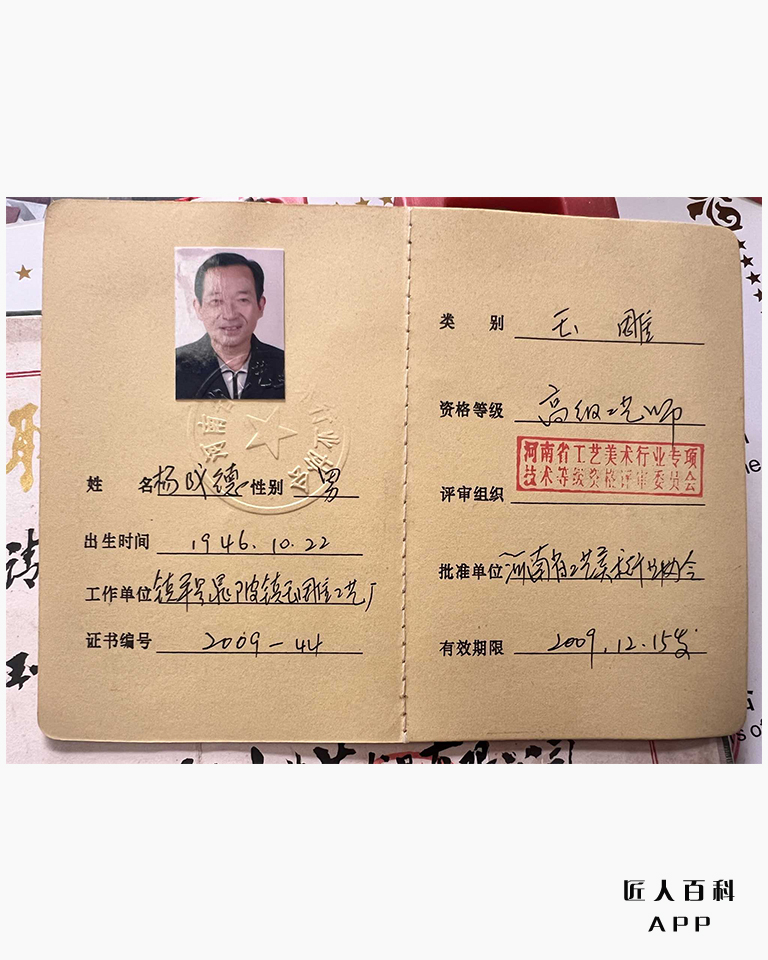 姓 名 杨成德 性别 男
出生时间 1946.10.22
工作单位 镇平县晁陂镇玉雕工艺厂
证书编号 2009-44
类 别 玉 雕
资格等级 高级工艺师
河南省工艺美术行业专项
技术等级资格评审委员会
评审组织
批准单位 河南省工艺美术行业协会
有效期限 2009.12.15发
匠人百科
APP